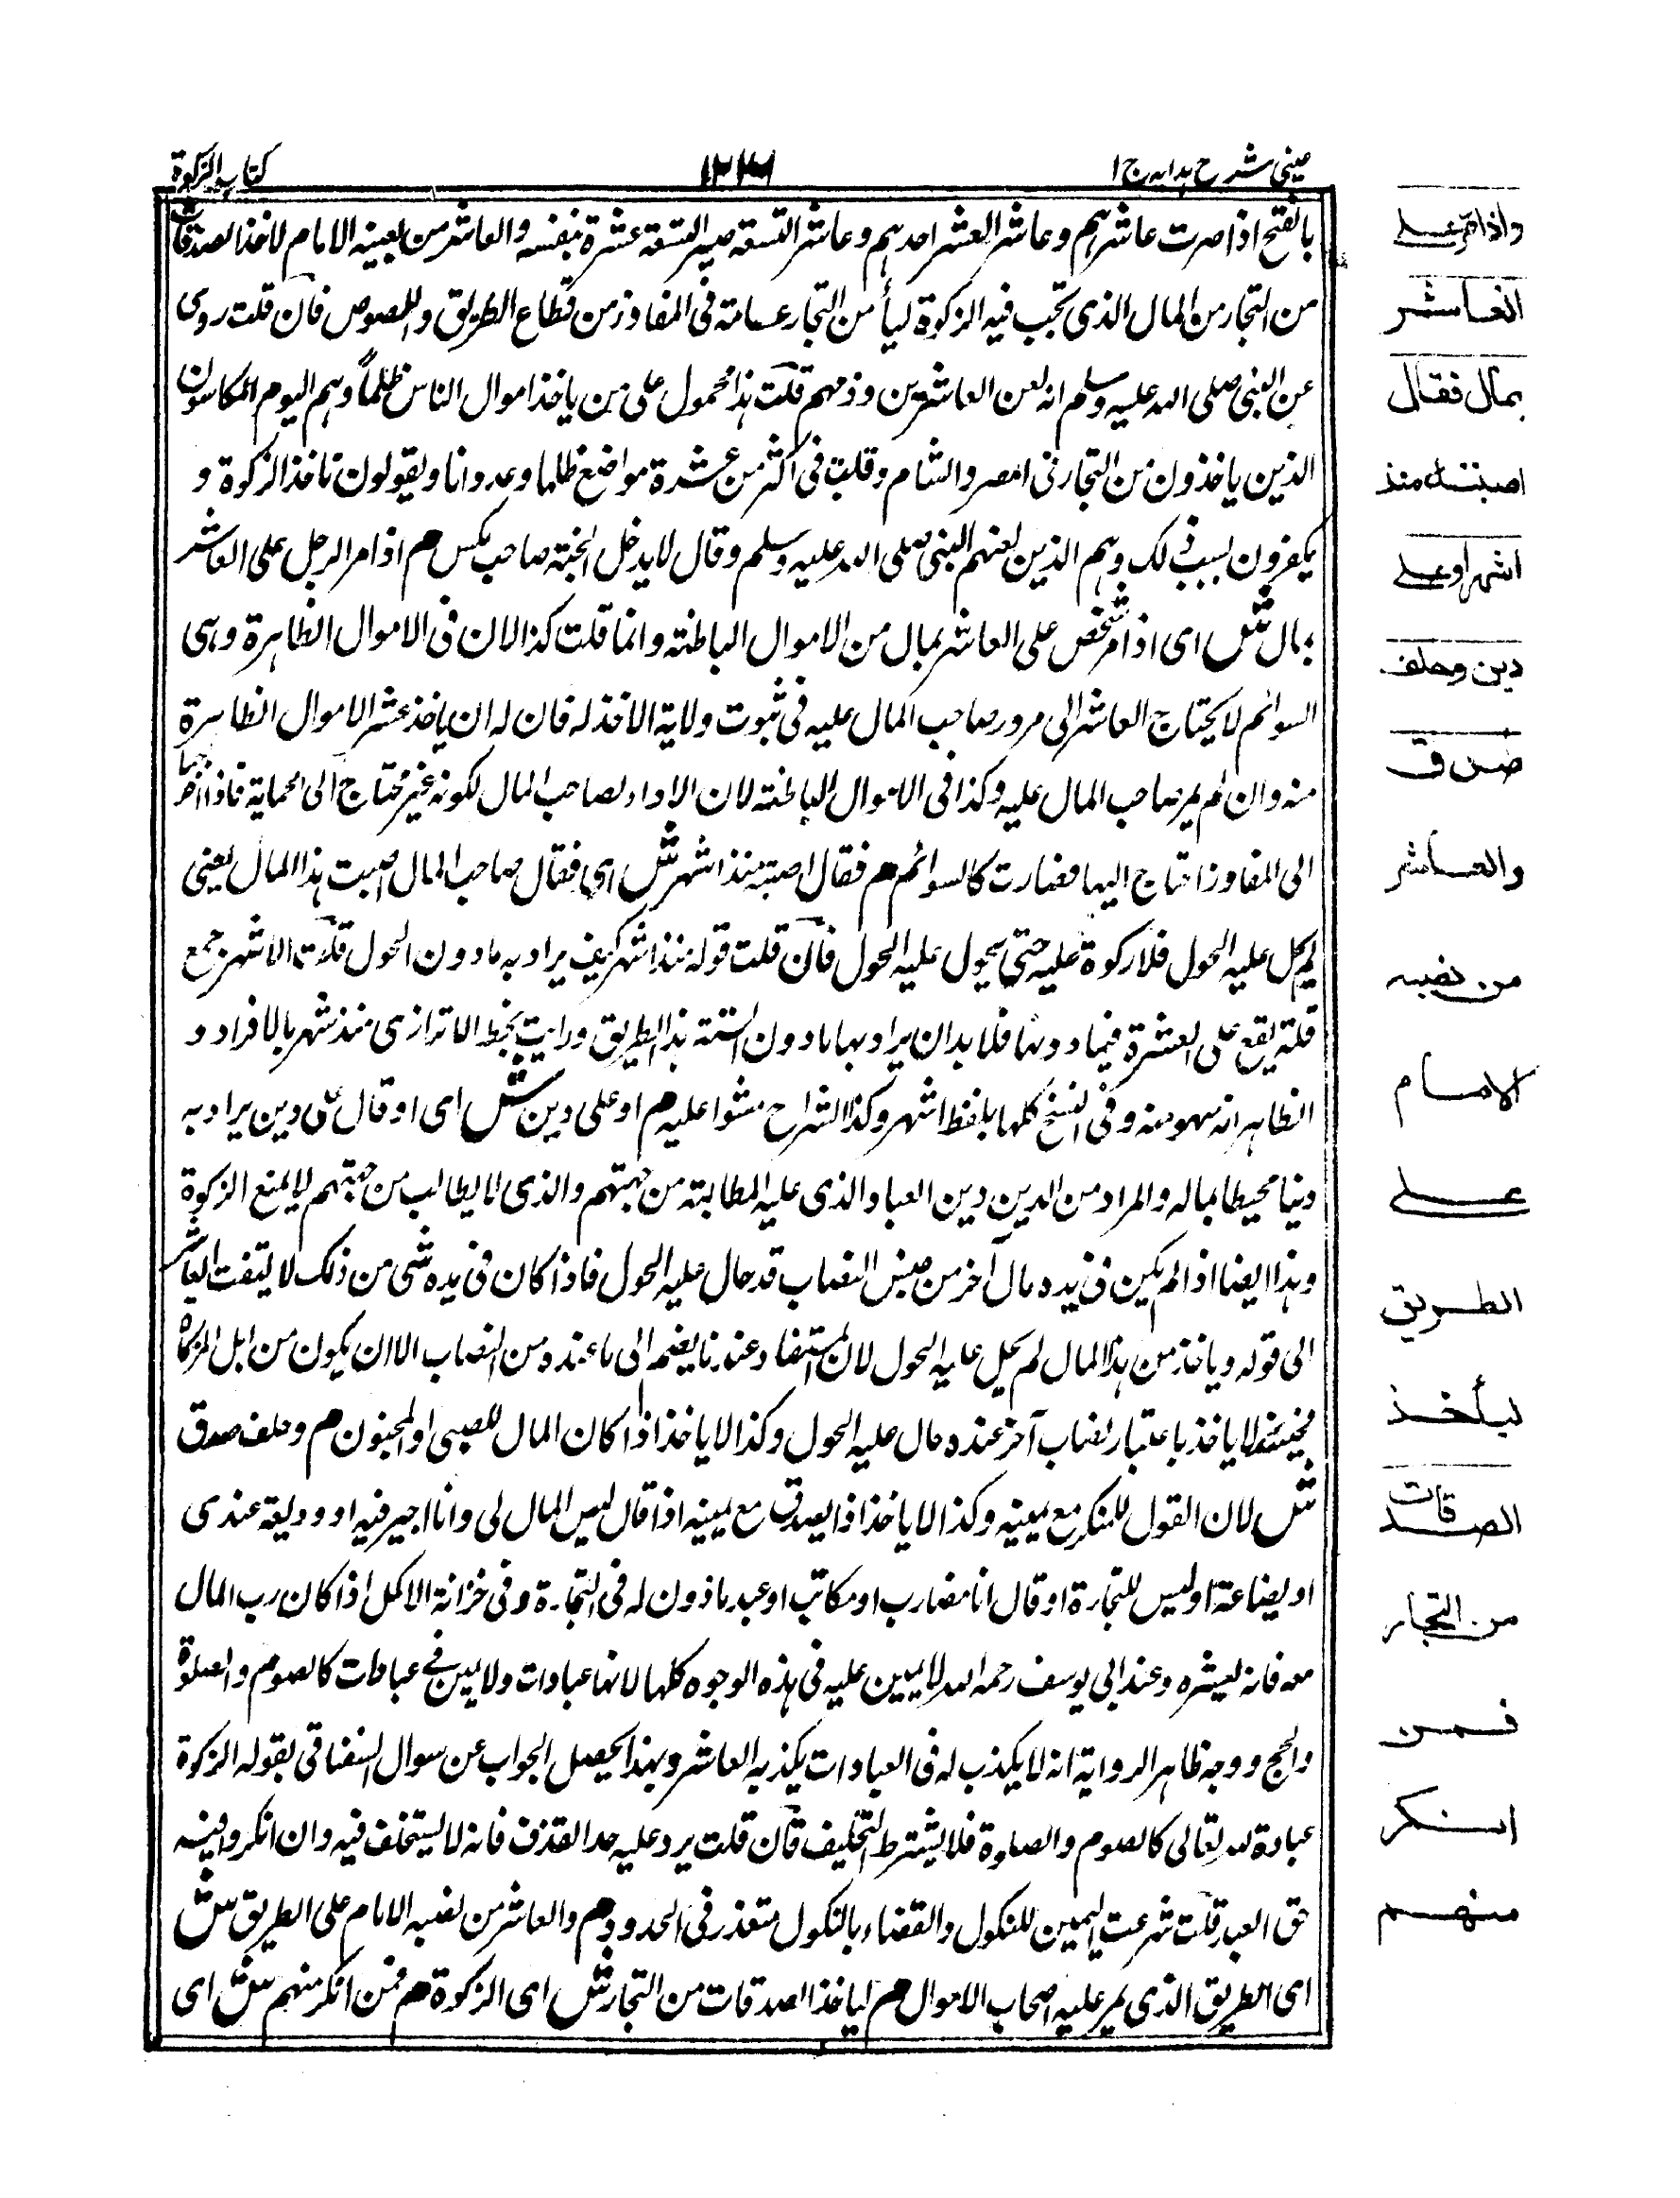 عینی شرح ہدایہ ج ۱
۱۲۳۶
کتاب الزکوة
بالفتح اذا صرت عاشرہم وعاشر العشر احدہم وعاشر التسعة صیر التسعة عشرة بنفسه والعاشر من یعینه الامام لاخذ الصدقات
من التجار من المال الذی تجب فیه الزکوة لیأمن التجار عسامته فی المفاوز من قطاع الطریق واللصوص فان قلت روی
عن النبی صلی الله علیه وسلم انه لعن العاشرین وذمهم قلت ہذا محمول علی من یاخذ اموال الناس ظلماً وہم الیوم المکاسون
الذین یاخذون من التجار فی المصر والشام وقلت فی اکثر من عشرة مواضع ظلما وعدوانا ویقولون ناخذ الزکوة و
یکفرون بسبب ذلک وہم الذین لعنهم النبی صلی الله علیه وسلم وقال لا یدخل الجنة صاحب مکس م اذا مر الرجل علی العاشر
بمال ش ای اذا مر شخص علی العاشر بمال من الاموال الباطنة وانما قلت کذا لان فی الاموال الظاہرة وہی
السوائم لا یحتاج العاشر الی مرور صاحب المال علیه فی ثبوت ولایة الاخذ له فان له ان یاخذ عشر الاموال الظاہرة
منه وان لم یمر صاحب المال علیه وکذا فی الاموال الباطنة لان الاداء لصاحب المال لکونه غیر محتاج الی الحمایة فاذا اخرجہا
الی المفاوز احتاج الیها فصارت کالسوائم م فقال اصبته منذ اشهر ش ای فقال صاحب المال اصبت ہذا المال یعنی
لم یحل علیه الحول فلا زکوة علیه حتی یحول علیه الحول فان قلت قوله منذ اشهر کیف یراد به ما دون الحول قلت الاشهر جمع
قلة یقع علی العشرة فیما دونہا فلا بد ان یراد بہا ما دون السنة بهذا الطریق ورایت بخط الاترازی منذ شهر بالافراد و
الظاہر انه سهو منه وفی النسخ کلها بلفظ اشهر وکذا الشراح مشوا علیه م او علی دین ش ای او قال علی دین یراد به
دینا محیطا بماله والمراد من الدین دین العباد الذی علیه المطالبة من جهتهم والذی لا یطالب من جهتهم لا یمنع الزکوة
وہذا ایضا اذا لم یکن فی یده مال آخر من جنس النصاب قد حال علیه الحول فاذا کان فی یده شی من ذلک لا یلتفت العاشر
الی قوله ویاخذ من ہذا المال لم یحل علیه الحول لان المستفاد عندنا یضم الی ما عنده من النصاب الا ان یکون من ابل المزکاة
فحینئذ لا یاخذ باعتبار نصاب آخر عنده حال علیه الحول وکذا لا یاخذ اذا کان المال للصبی او المجنون م وحلف صدق
ش لان القول للمنکر مع یمینه وکذا لا یاخذ اذ یصدق مع یمینه اذا قال لیس المال لی وانا اجیر فیه او ودیعة عندی
او بضاعة او لیس للتجارة او قال انا مضارب او مکاتب او عبد ماذون له فی التجارة وفی خزانة الاکمل اذا کان رب المال
معه فانه یعشره وعند ابی یوسف رحمه الله لا یمین علیه فی ہذه الوجوه کلها لانها عبادات ولا یمین فی عبادات کالصوم والصلوة
والحج ووجه ظاہر الروایة انه لا یکذب له فی العبادات یکذبه العاشر وبهذا یحصل الجواب عن سوال السغناقی بقوله الزکوة
عبادة لله تعالی کالصوم والصلوة فلا یشترط التحلیف فان قلت یرد علیه حد القذف فانه لا یستحلف فیه وان انکر وفیه
حق العبد قلت شرعت الیمین للنکول والقضاء بالنکول متعذر فی الحدود م والعاشر من نصبه الامام علی الطریق ش
ای الطریق الذی یمر علیه اصحاب الاموال م لیاخذ الصدقات من التجار ش ای الزکوة م فمن انکر منهم ش ای
واذا مر علی
العاشر
بمال فقال
اصبته منذ
اشهر او علی
دین وحلف
صدق
والعاشر
من نصبه
الامام
علی
الطریق
لیأخذ
الصدقات
من التجار
فمن
انکر
منهم